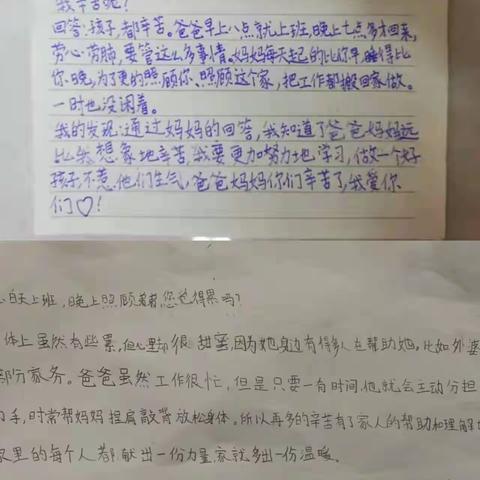 我辛苦呢?
回答:孩子,都辛苦。爸爸早上八点就上班,晚上七点多才回来,
劳心劳肺,要管这么多事情。妈妈每天起的比你早,睡得比
你晚,为了更的照顾你、照顾这个家,把工作都搬回家做。
一时也没闲着。
我的发现:通过妈妈的回答,我知道了爸爸妈妈远
比我想象地辛苦,我要更加努力地学习,做一个好
孩子,不惹他们生气,爸爸妈妈你们辛苦了,我爱你
们♡!
白天上班,晚上照顾着,您觉得累吗?
体上虽然有些累,但心里却很甜蜜,因为她身边有得多人在帮助她,比如外婆
部分家务。爸爸虽然工作很忙,但是只要一有时间,他就会主动分担
手,时常帮妈妈捏肩敲背放松身体。所以再多的辛苦有了家人的帮助和理解
家里的每个人都献出一份力量,家就多出一份温暖。